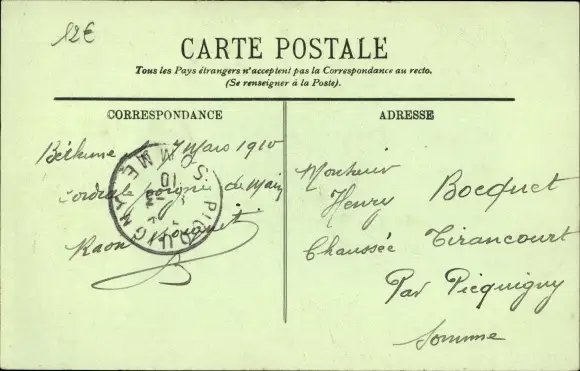 12€
CARTE POSTALE
Tous les Pays étrangers n'acceptent pas la Correspondance au recto.
(Se renseigner à la Poste).
CORRESPONDANCE
ADRESSE
Béthune 7 Mars 1910
Cordiale poignée de Main
Raoul
PICQUIGNY
SOMME
Monsieur
Henry Bocquet
Chaussée Tirancourt
Par Picquigny
Somme